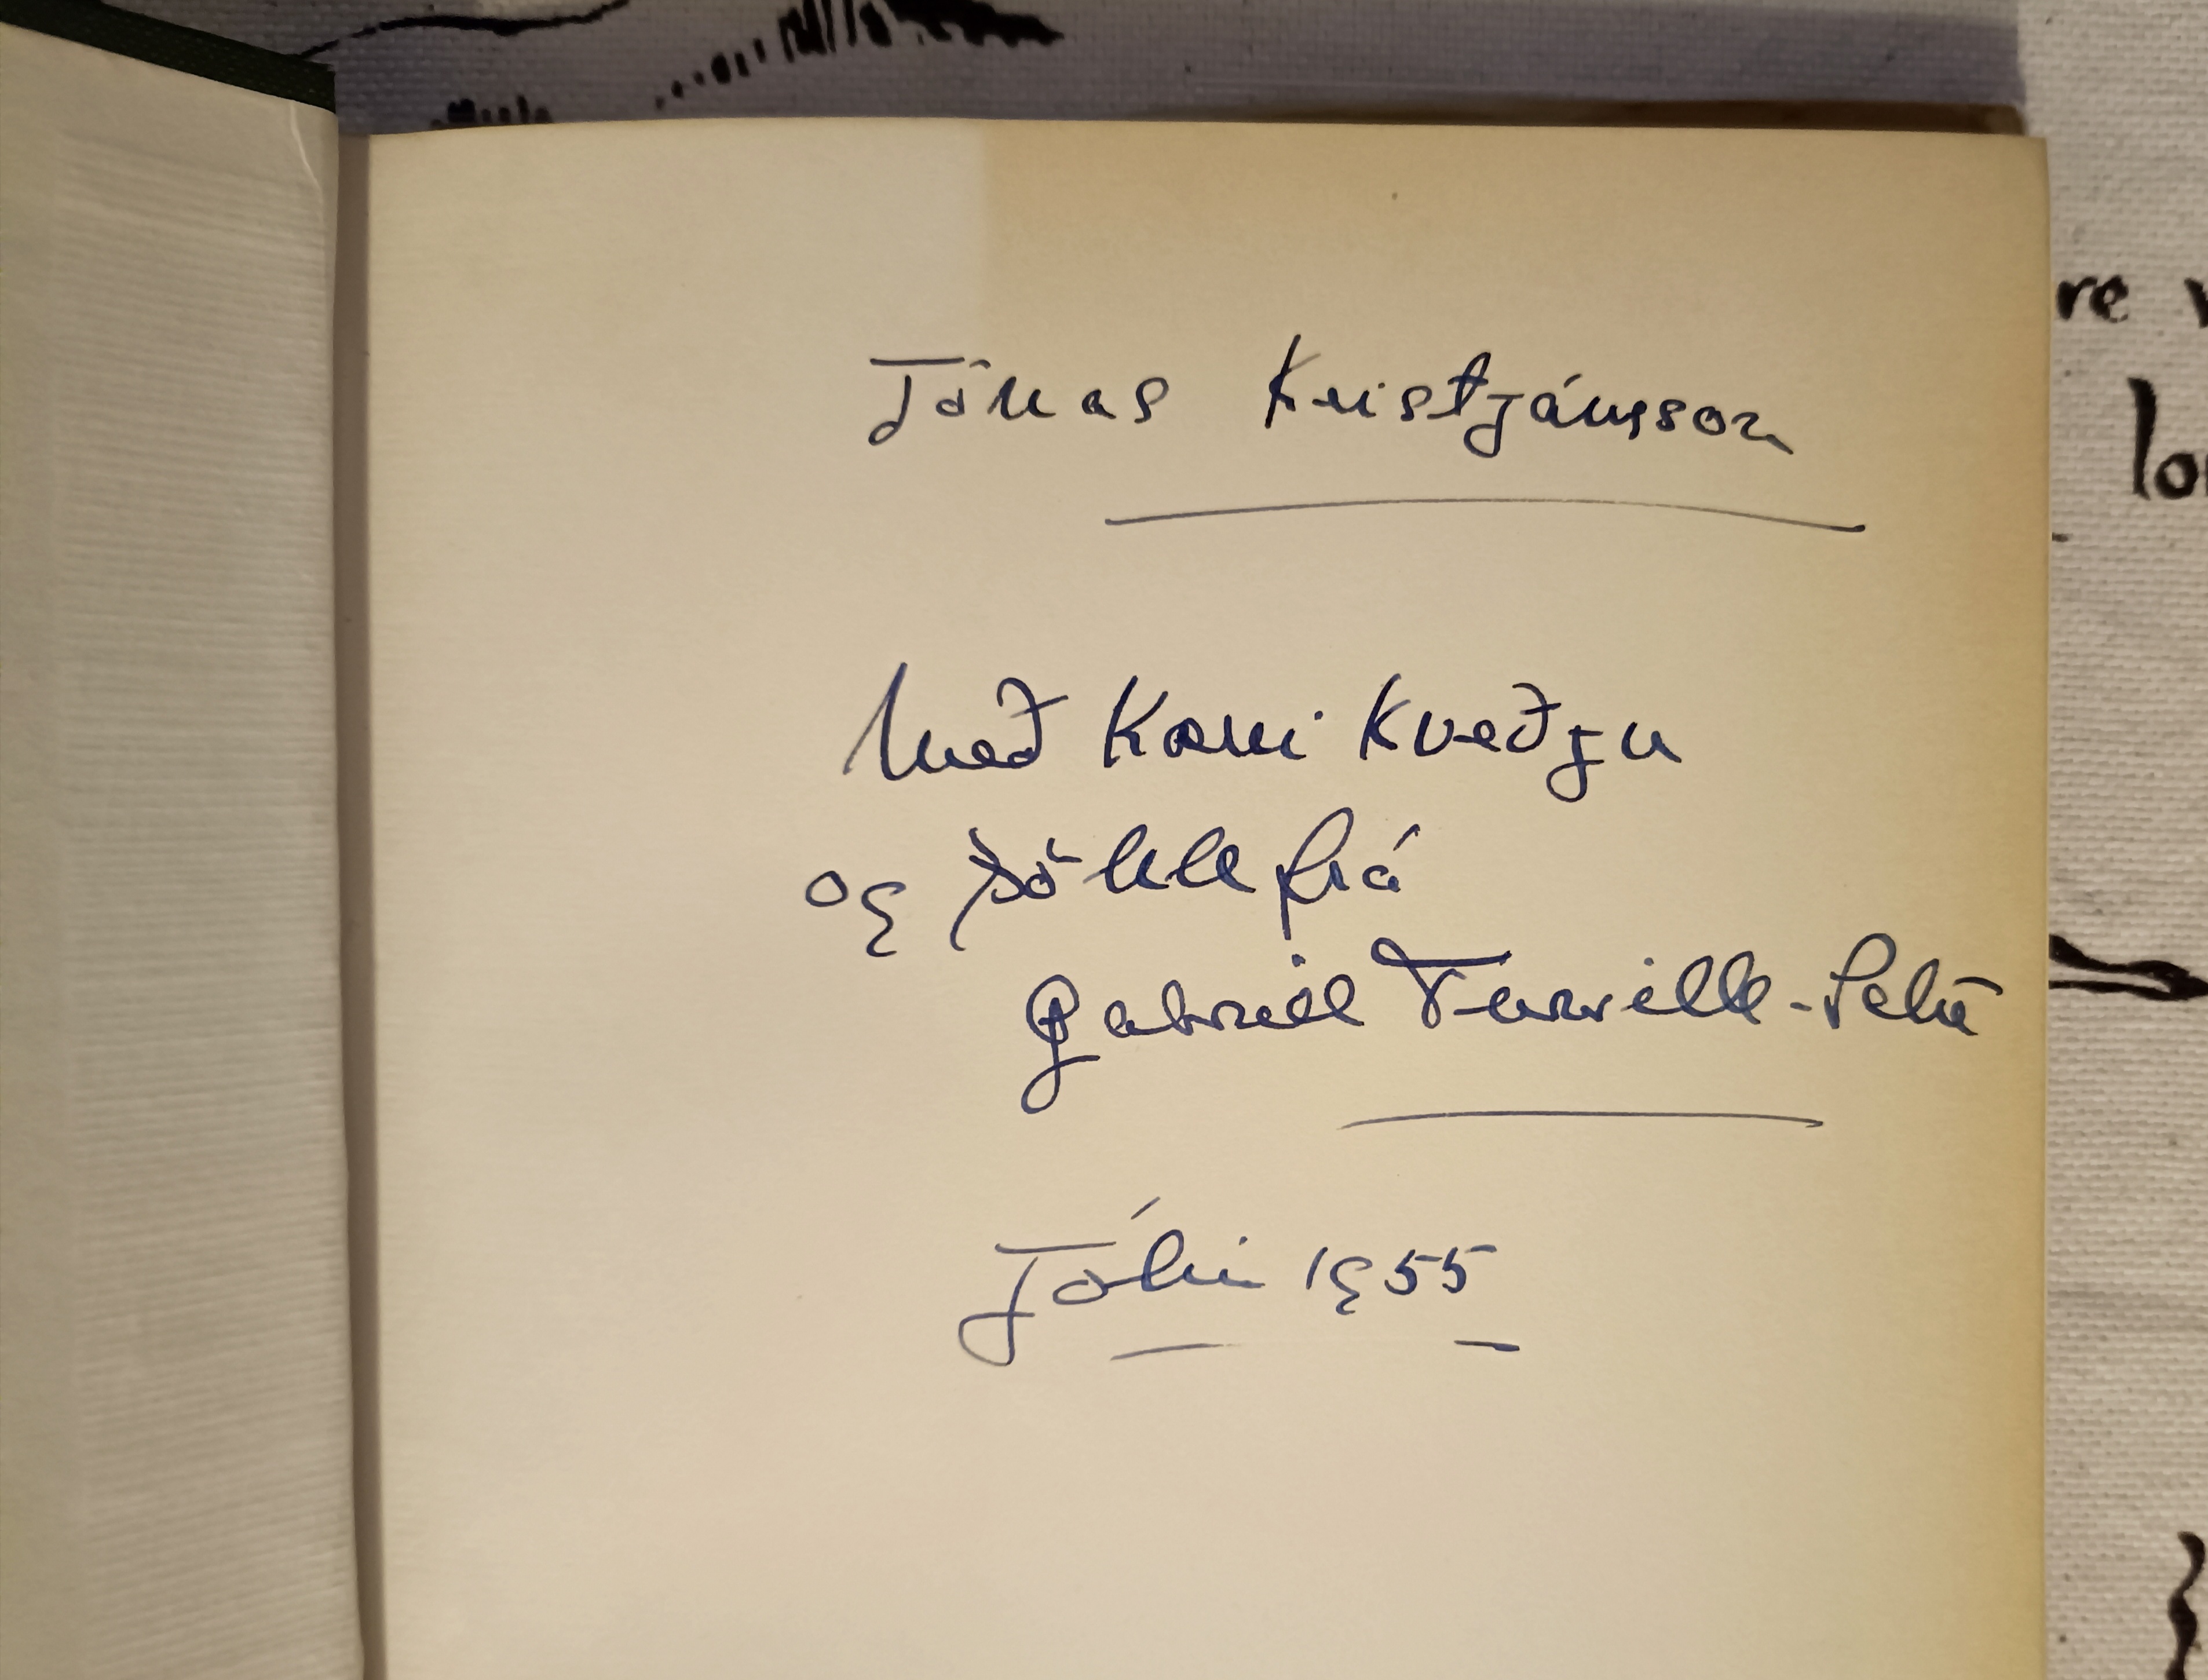 Jónas Kristjánsson
Með Kærri Kveðju
og þökk frá
Gabriel Turville-Petre
Jólin 1955
re